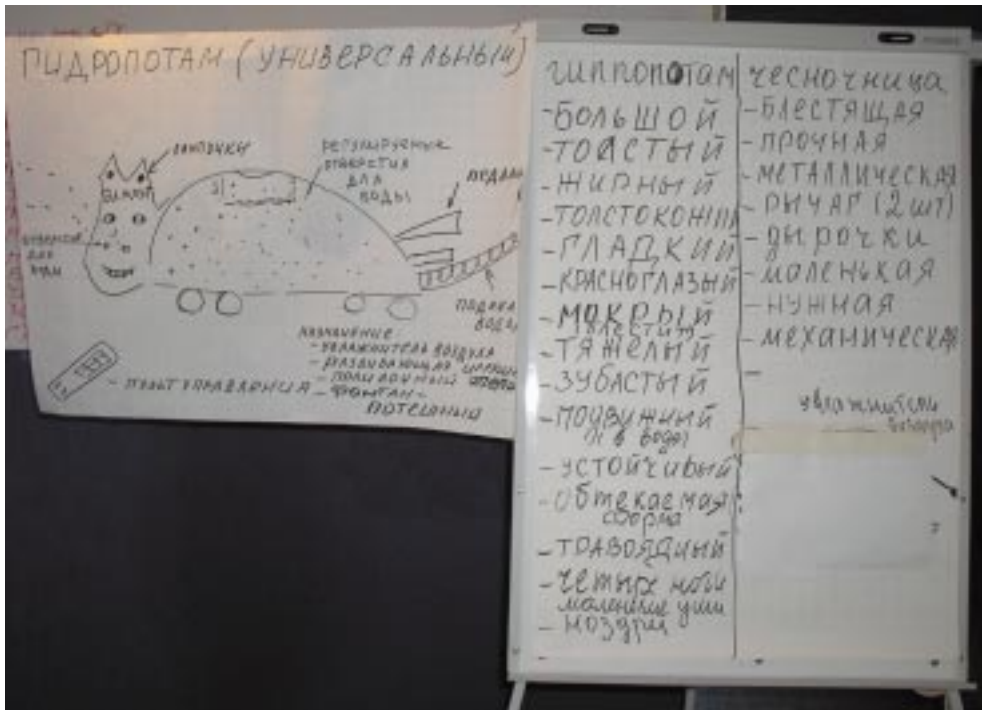 ГИДРОПОТАМ (УНИВЕРСАЛЬНЫЙ)
ЛАМПОЧКИ
РЕГУЛИРУЕМЫЕ
ОТВЕРСТИЯ
ДЛЯ
ВОДЫ
ДЛЯ
ВОДЫ
ПОДАЧА
ВОДЫ
НАЗНАЧЕНИЕ
- УВЛАЖНИТЕЛЬ ВОЗДУХА
- РАЗВИВАЮЩАЯ ИГРУШКА
- ПОЛИВОЧНЫЙ
- ФОНТАН
ПОТЕШНЫЙ
- ПУЛЬТ УПРАВЛЕНИЯ
ГИППОПОТАМ
- БОЛЬШОЙ
- ТОЛСТЫЙ
- ЖИРНЫЙ
- ТОЛСТОКОЖИЙ
- ГЛАДКИЙ
- КРАСНОГЛАЗЫЙ
- МОКРЫЙ
блестит
- ТЯЖЕЛЫЙ
- ЗУБАСТЫЙ
- ПОДВИЖНЫЙ
в воде
- УСТОЙЧИВЫЙ
- Обтекаемая
форма
- ТРАВОЯДНЫЙ
- четыре ноги
маленькие уши
- НОЗДРИ
ЧЕСНОЧНИЦА
- БЛЕСТЯЩАЯ
- ПРОЧНАЯ
- МЕТАЛЛИЧЕСКАЯ
- РЫЧАГ (2 ШТ)
- ДЫРОЧКИ
- МАЛЕНЬКАЯ
- НУЖНАЯ
- МЕХАНИЧЕСКАЯ
-
увлажнители
воздуха